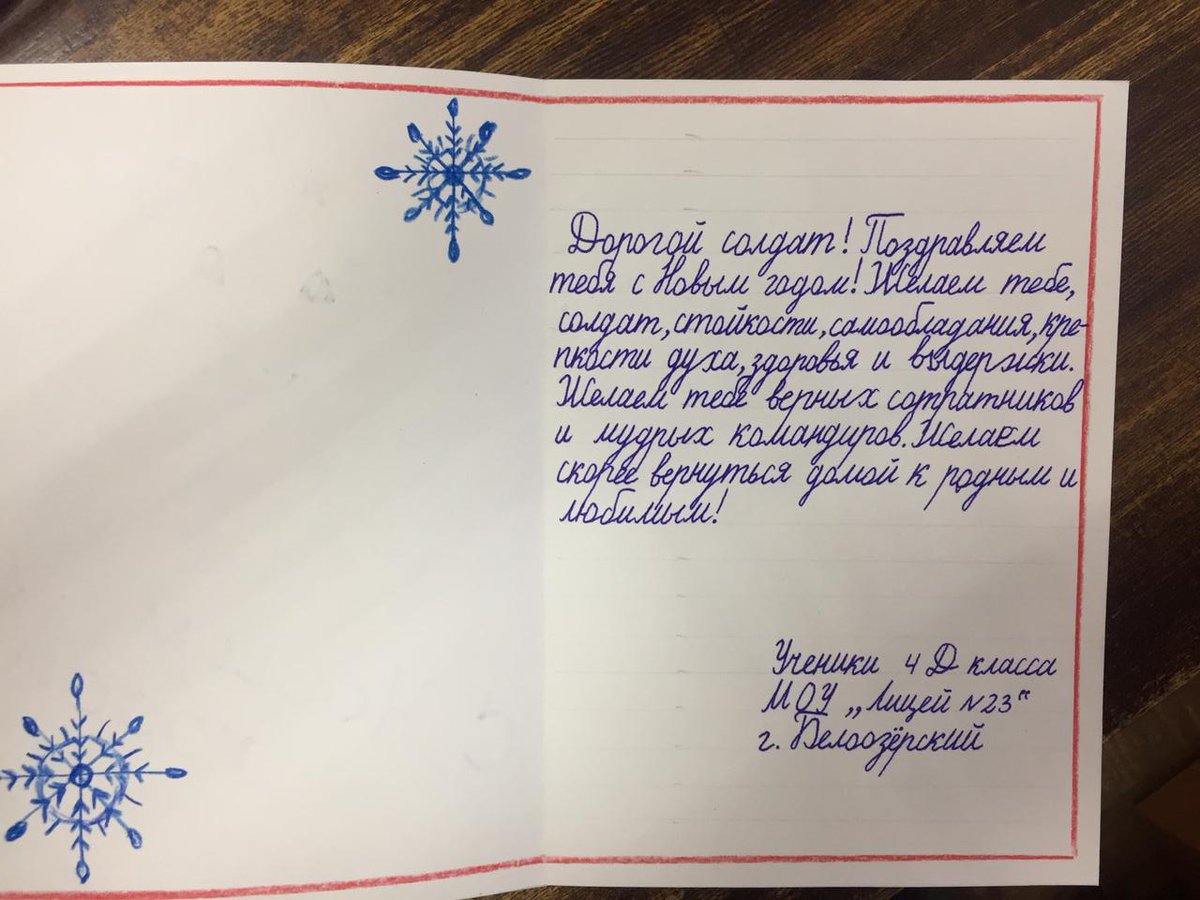 Дорогой солдат! Поздравляем
тебя с Новым годом! Желаем тебе,
солдат, стойкости, самообладания, кре-
пкости духа, здоровья и выдержки.
Желаем тебе верных сотратников
и мудрых командиров. Желаем
скорее вернуться домой к родным и
любимым!
Ученики 4 Д класса
МОУ „Лицей №23"
г. Белоозёрский